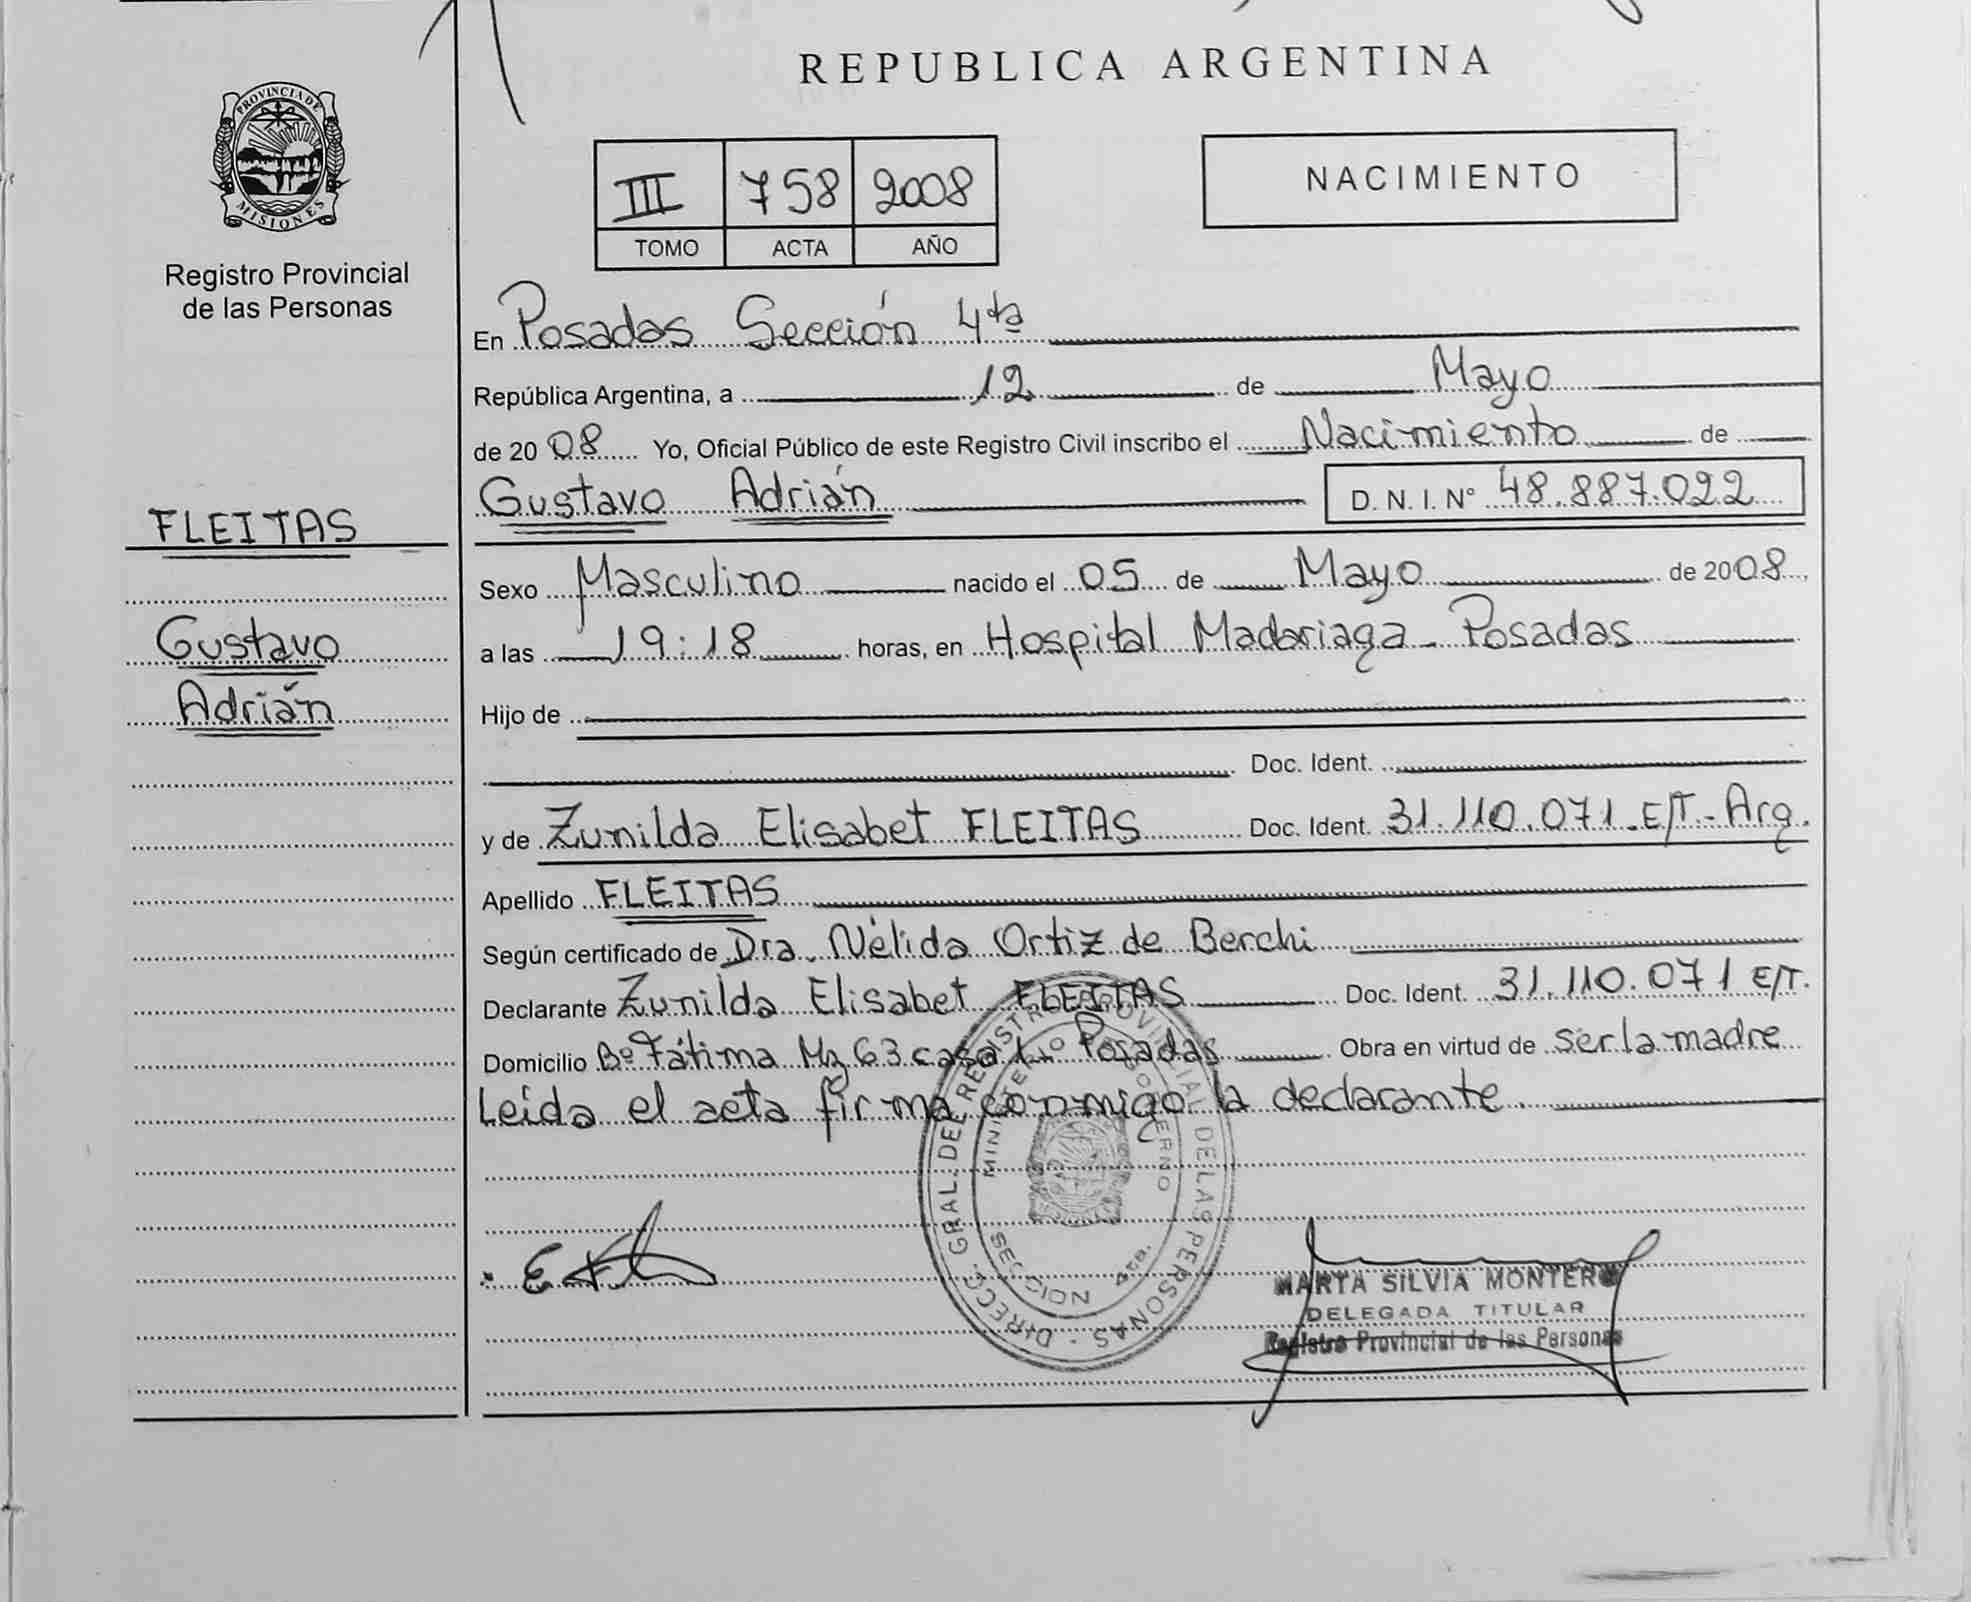 REPUBLICA ARGENTINA
PROVINCIA DE MISIONES
Registro Provincial
de las Personas
III 758 2008
TOMO ACTA AÑO
NACIMIENTO
En Posadas Sección 4ta
República Argentina, a 12 de Mayo
de 2008 Yo, Oficial Público de este Registro Civil inscribo el Nacimiento de
Gustavo Adrián D. N. I. N° 48.887.022
FLEITAS
Gustavo
Adrián
Sexo Masculino nacido el 05 de Mayo de 2008,
a las 19:18 horas, en Hospital Madariaga - Posadas
Hijo de
Doc. Ident.
y de Zunilda Elisabet FLEITAS Doc. Ident. 31.110.071 - E/T. - Arg.
Apellido FLEITAS
Según certificado de Dra. Nélida Ortiz de Berchi
Declarante Zunilda Elisabet FLEITAS Doc. Ident. 31.110.071 E/T.
Domicilio Bº Fátima Mz 63 casa Posadas Obra en virtud de ser la madre
Leída el acta firma conmigo la declarante.
DIRECC. GRAL. DEL REGISTRO PROVINCIAL DE LAS PERSONAS
MINISTERIO GOBIERNO
SECCION 4ta.
MARTA SILVIA MONTERO
DELEGADA TITULAR
Registro Provincial de las Personas